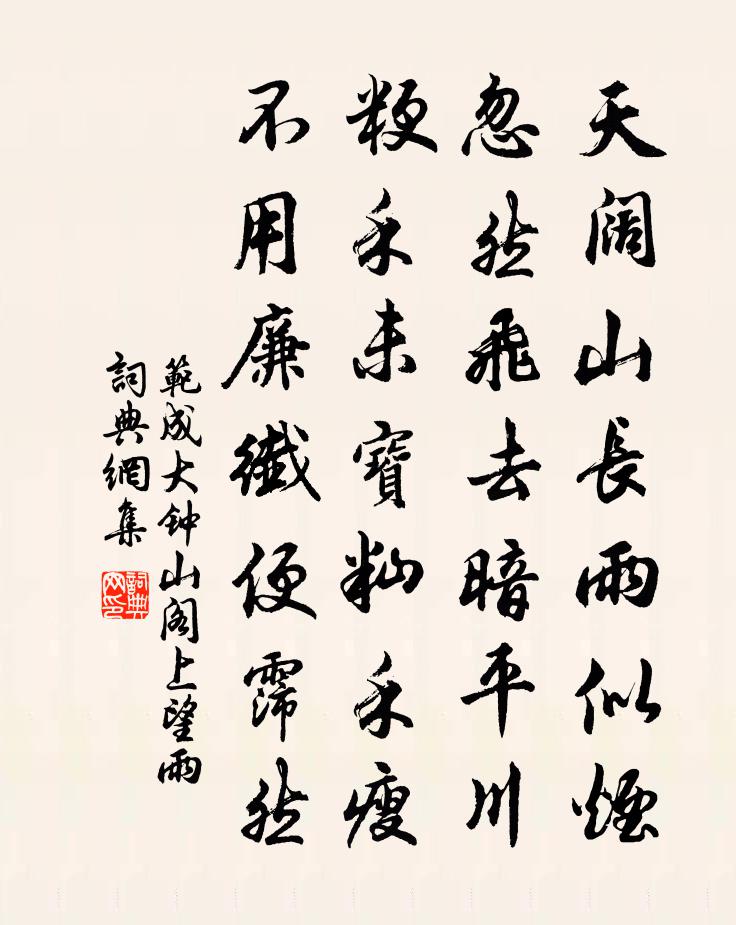 天闊山長雨似煙
忽然飛去暗平川
粳禾未寶籼禾瘦
不用廉纖便霈然
範成大钟山阁上望雨
詞典網集
詞典网印